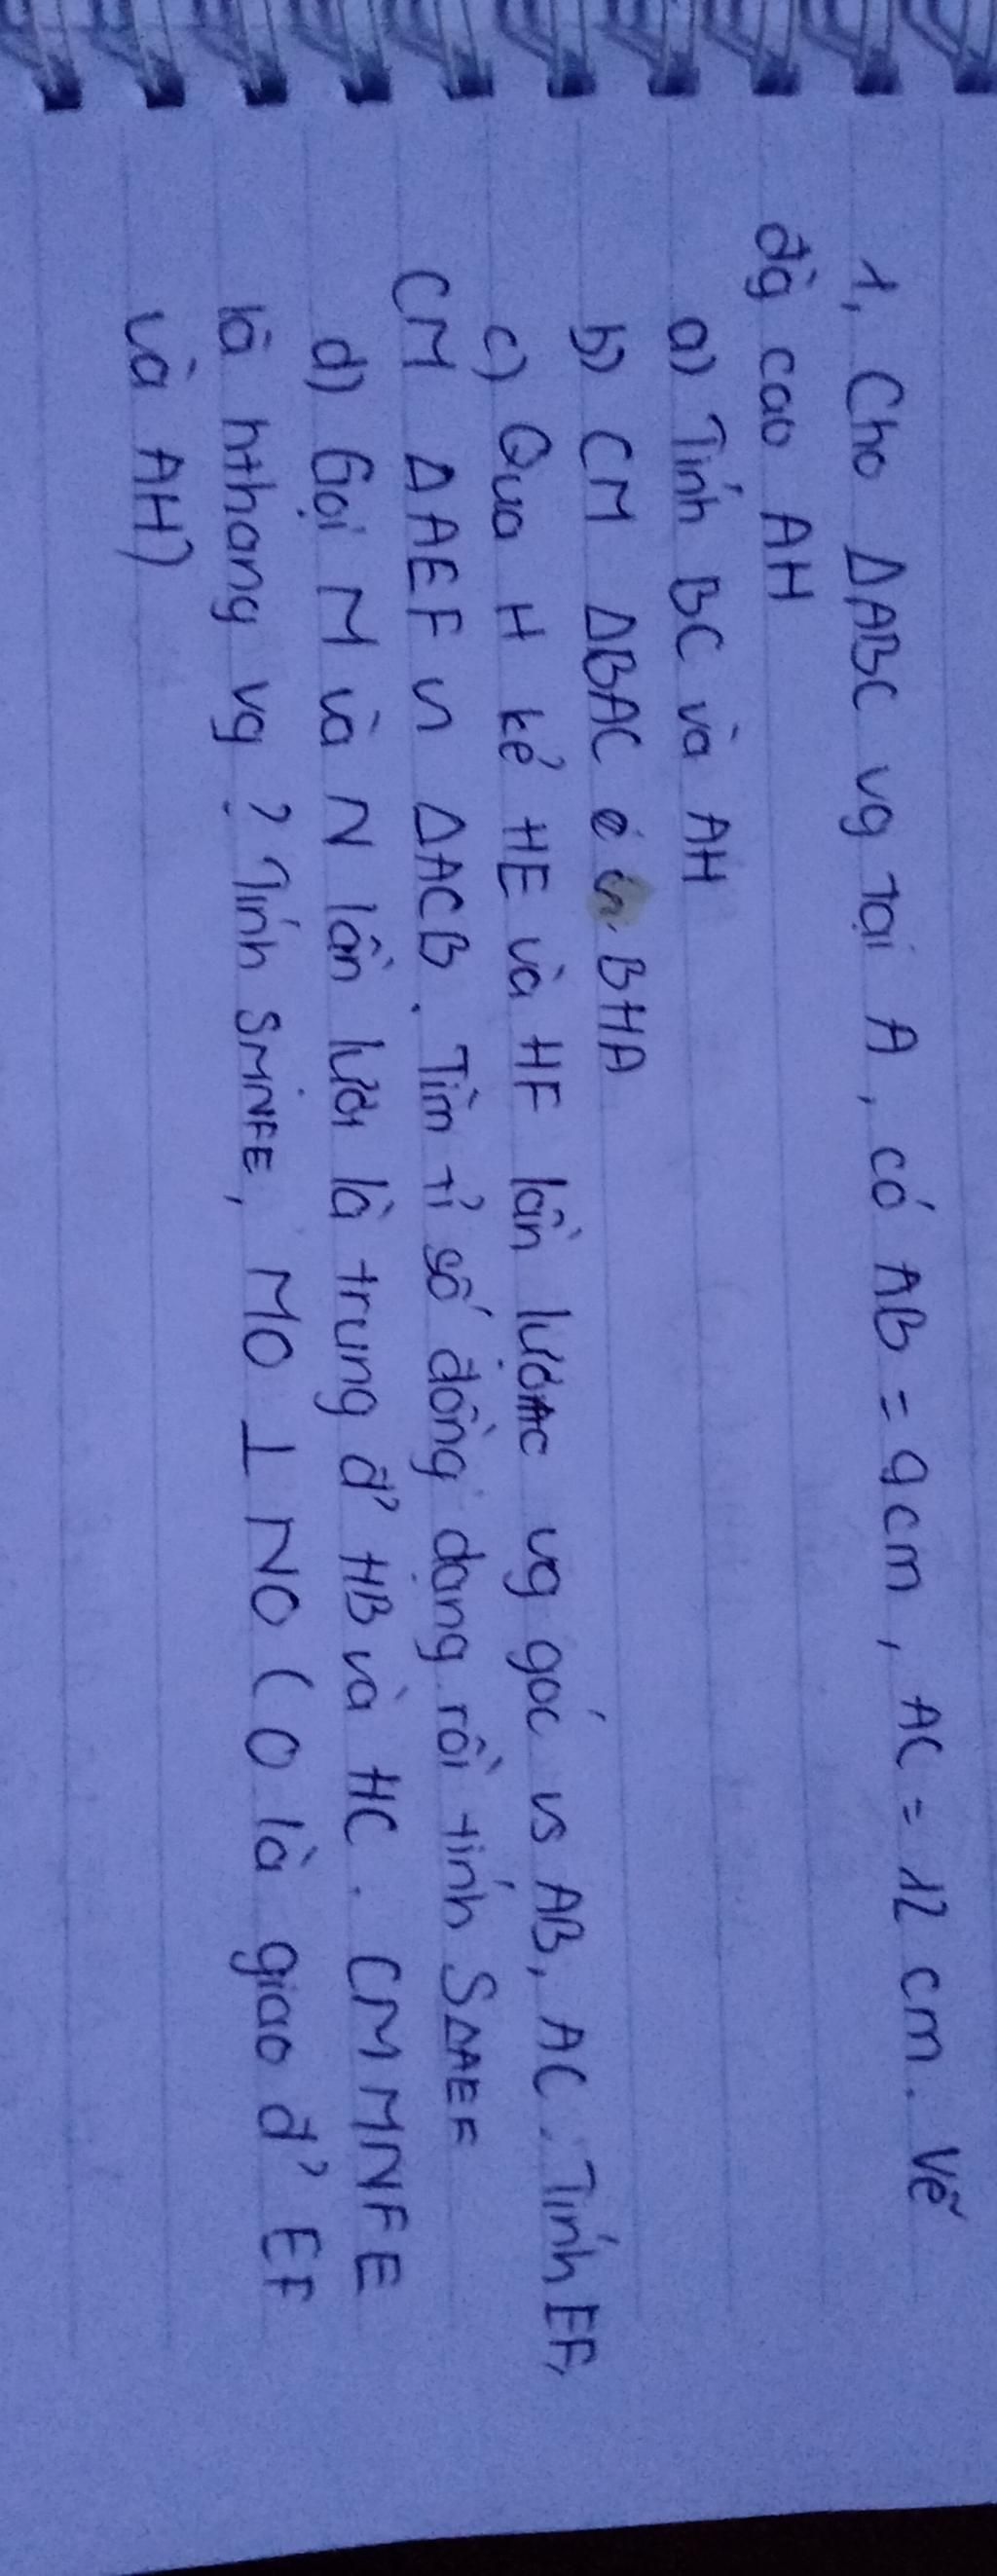 1, Cho ΔABC vg tại A, có AB = 9cm, AC = 12 cm. Vẽ
đg cao AH
a) Tính BC và AH
b) CM ΔBAC ᔕ BHA
c) Qua H kẻ HE và HF lần lượt vg góc vs AB, AC. Tính EF,
CM ΔAEF ᔕ ΔACB. Tìm tỉ số đồng dạng rồi tính SΔAEF
d) Gọi M và N lần lượt là trung đ' HB và HC. CM MNFE
là hthang vg? Tính SMNFE, MO ⊥ NO (O là giao đ' EF
và AH)